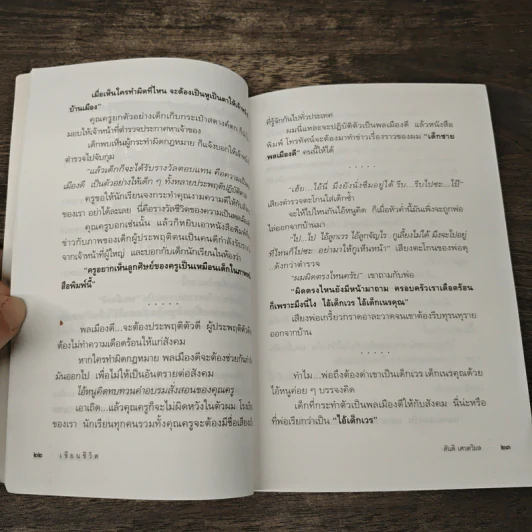 เมื่อเห็นใครทำผิดที่ไหน จะต้องเป็นหูเป็นตาให้เจ้าหน้าที่
บ้านเมือง”
คุณครูยกตัวอย่างเด็กเก็บกระเป๋าสตางค์ตก
มอบให้เจ้าหน้าที่ตำรวจประกาศหาเจ้าของ
เด็กพบเห็นผู้กระทำผิดกฎหมาย ก็แจ้งบอกให้เจ้าหน้าที่
ตำรวจไปจับกุม
“แล้วเด็กก็จะได้รับรางวัลตอบแทน คือความเป็น
เมืองดี เป็นตัวอย่างให้เด็ก ๆ ทั้งหลายประพฤติปฏิบัติตาม
ครูขอให้นักเรียนจงกระทำคุณงามความดีให้กับ
ของเรา อย่าได้ละเลย นี่คือรางวัลชีวิตของความเป็นพลเมืองดี
คุณครูบอกเช่นนั้น แล้วก็หยิบเอาหนังสือพิมพ์
ข่าวกับภาพของเด็กผู้ประพฤติตนเป็นคนดีกำลังรับรางวัล
จากเจ้าหน้าที่ผู้ใหญ่ และบอกกับเด็กนักเรียนในห้องว่า
“ครูอยากเห็นลูกศิษย์ของครูเป็นเหมือนเด็กในภาพ
สือพิมพ์นี้”
. . . . .
พลเมืองดี...จะต้องประพฤติตัวดี ผู้ประพฤติตัวดี
ต้องไม่ทำความเดือดร้อนให้แก่สังคม
หากใครทำผิดกฎหมาย พลเมืองดีจะต้องช่วยกัน
มันออกไป เพื่อไม่ให้เป็นอันตรายต่อสังคม
ไอ้หนูคิดทบทวนคำอบรมสั่งสอนของคุณครู
เอาเถิด...แล้วคุณครูก็จะไม่ผิดหวังในตัวผม โรงเรียน
ของเรา นักเรียนทุกคนรวมทั้งคุณครูจะต้องมีชื่อเสียง
๒๒ เขียนชีวิต
ที่รู้จักกันไปทั่วประเทศ
ผมนี่แหละจะปฏิบัติตัวเป็นพลเมืองดี แล้วหนังสือ
พิมพ์ โทรทัศน์จะต้องมาทำข่าวเรื่องราวของผม “เด็กชาย
พลเมืองดี” คนนี้ให้ได้
. . . . .
“เฮ้ย...ไอ้นี่ มึงยังนั่งซึมอยู่ได้ รีบ...รีบไปซะ...โป๊!”
เสียงตำรวจตะโกนใส่เด็กซ้ำ
จะให้ไปไหนกันไอ้หนูคิด ก็เมื่อหัวค่ำนี้มันเพิ่งจะถูกพ่อ
ไล่ออกจากบ้านมา
“ไป...ไป ไอ้ลูกเวร ไอ้ลูกจัญไร กูเลี้ยงไม่ได้ มึงจะไปอยู่
ที่ไหนก็ไปซะ อย่ามาให้กูเห็นหน้า” เสียงตะโกนของพ่อดุ
ดังกว่าตำรวจ
“ผมผิดตรงไหนครับ” เขาถามกับพ่อ
“ผิดตรงไหนยังมีหน้ามาถาม ครอบครัวเราเดือดร้อน
ก็เพราะมึงนี่ไง ไอ้เด็กเวร ไอ้เด็กเนรคุณ”
เสียงพ่อเกรี้ยวกราดอาละวาดจนเขาต้องรีบทุรนทุราย
ออกจากบ้าน
. . . . .
ทำไม...พ่อถึงต้องด่าเขาเป็นเด็กเวร เด็กเนรคุณด้วย
ไอ้หนูค่อย ๆ บรรจงคิด
เด็กที่กระทำตัวเป็นพลเมืองดีให้กับสังคม นี่น่ะหรือ
ที่พ่อเรียกว่าเป็น “ไอ้เด็กเวร”
สันติ เศวตวิมล ๒๓